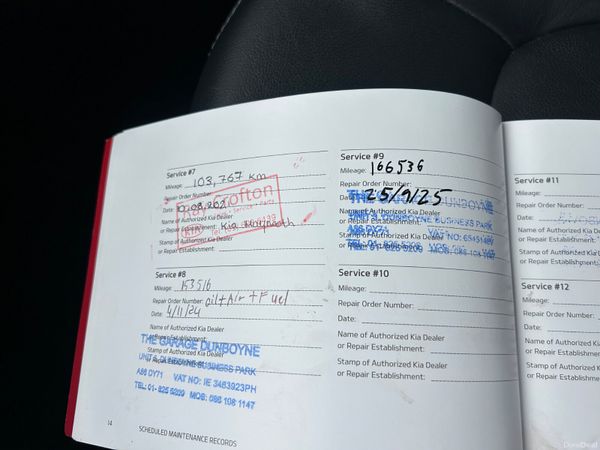 Service #7
Mileage: 103,767 km
Repair Order Number:
Date:
Name of Authorized Kia Dealer
or Repair Establishment: Kia Maynooth
Stamp of Authorized Kia Dealer
or Repair Establishment:
Service #8
Mileage: 153516
Repair Order Number: oil + Air + Fuel
Date: 4/11/24
Name of Authorized Kia Dealer
or Repair Establishment:
Stamp of Authorized Kia Dealer
or Repair Establishment:
THE GARAGE DUNBOYNE
UNIT 8, DUNBOYNE BUSINESS PARK
A86 DY71 VAT NO: IE 3483923PH
TEL: 01- 825 5209 MOB: 086 106 1147
14 SCHEDULED MAINTENANCE RECORDS
Service #9
Mileage: 166536
Repair Order Number:
Date: 25/9/25
Name of Authorized Kia Dealer
or Repair Establishment:
Stamp of Authorized Kia Dealer
or Repair Establishment:
Service #10
Mileage:
Repair Order Number:
Date:
Name of Authorized Kia Dealer
or Repair Establishment:
Stamp of Authorized Kia Dealer
or Repair Establishment:
Service #11
Mileage:
Repair Order Number:
Date:
Name of Authorized Kia Dealer
or Repair Establishment:
Stamp of Authorized Kia Dealer
or Repair Establishment:
Service #12
Mileage:
Repair Order Number:
Date:
Name of Authorized Kia
or Repair Establishment
Stamp of Authorized Kia
or Repair Establishment
DoneDeal